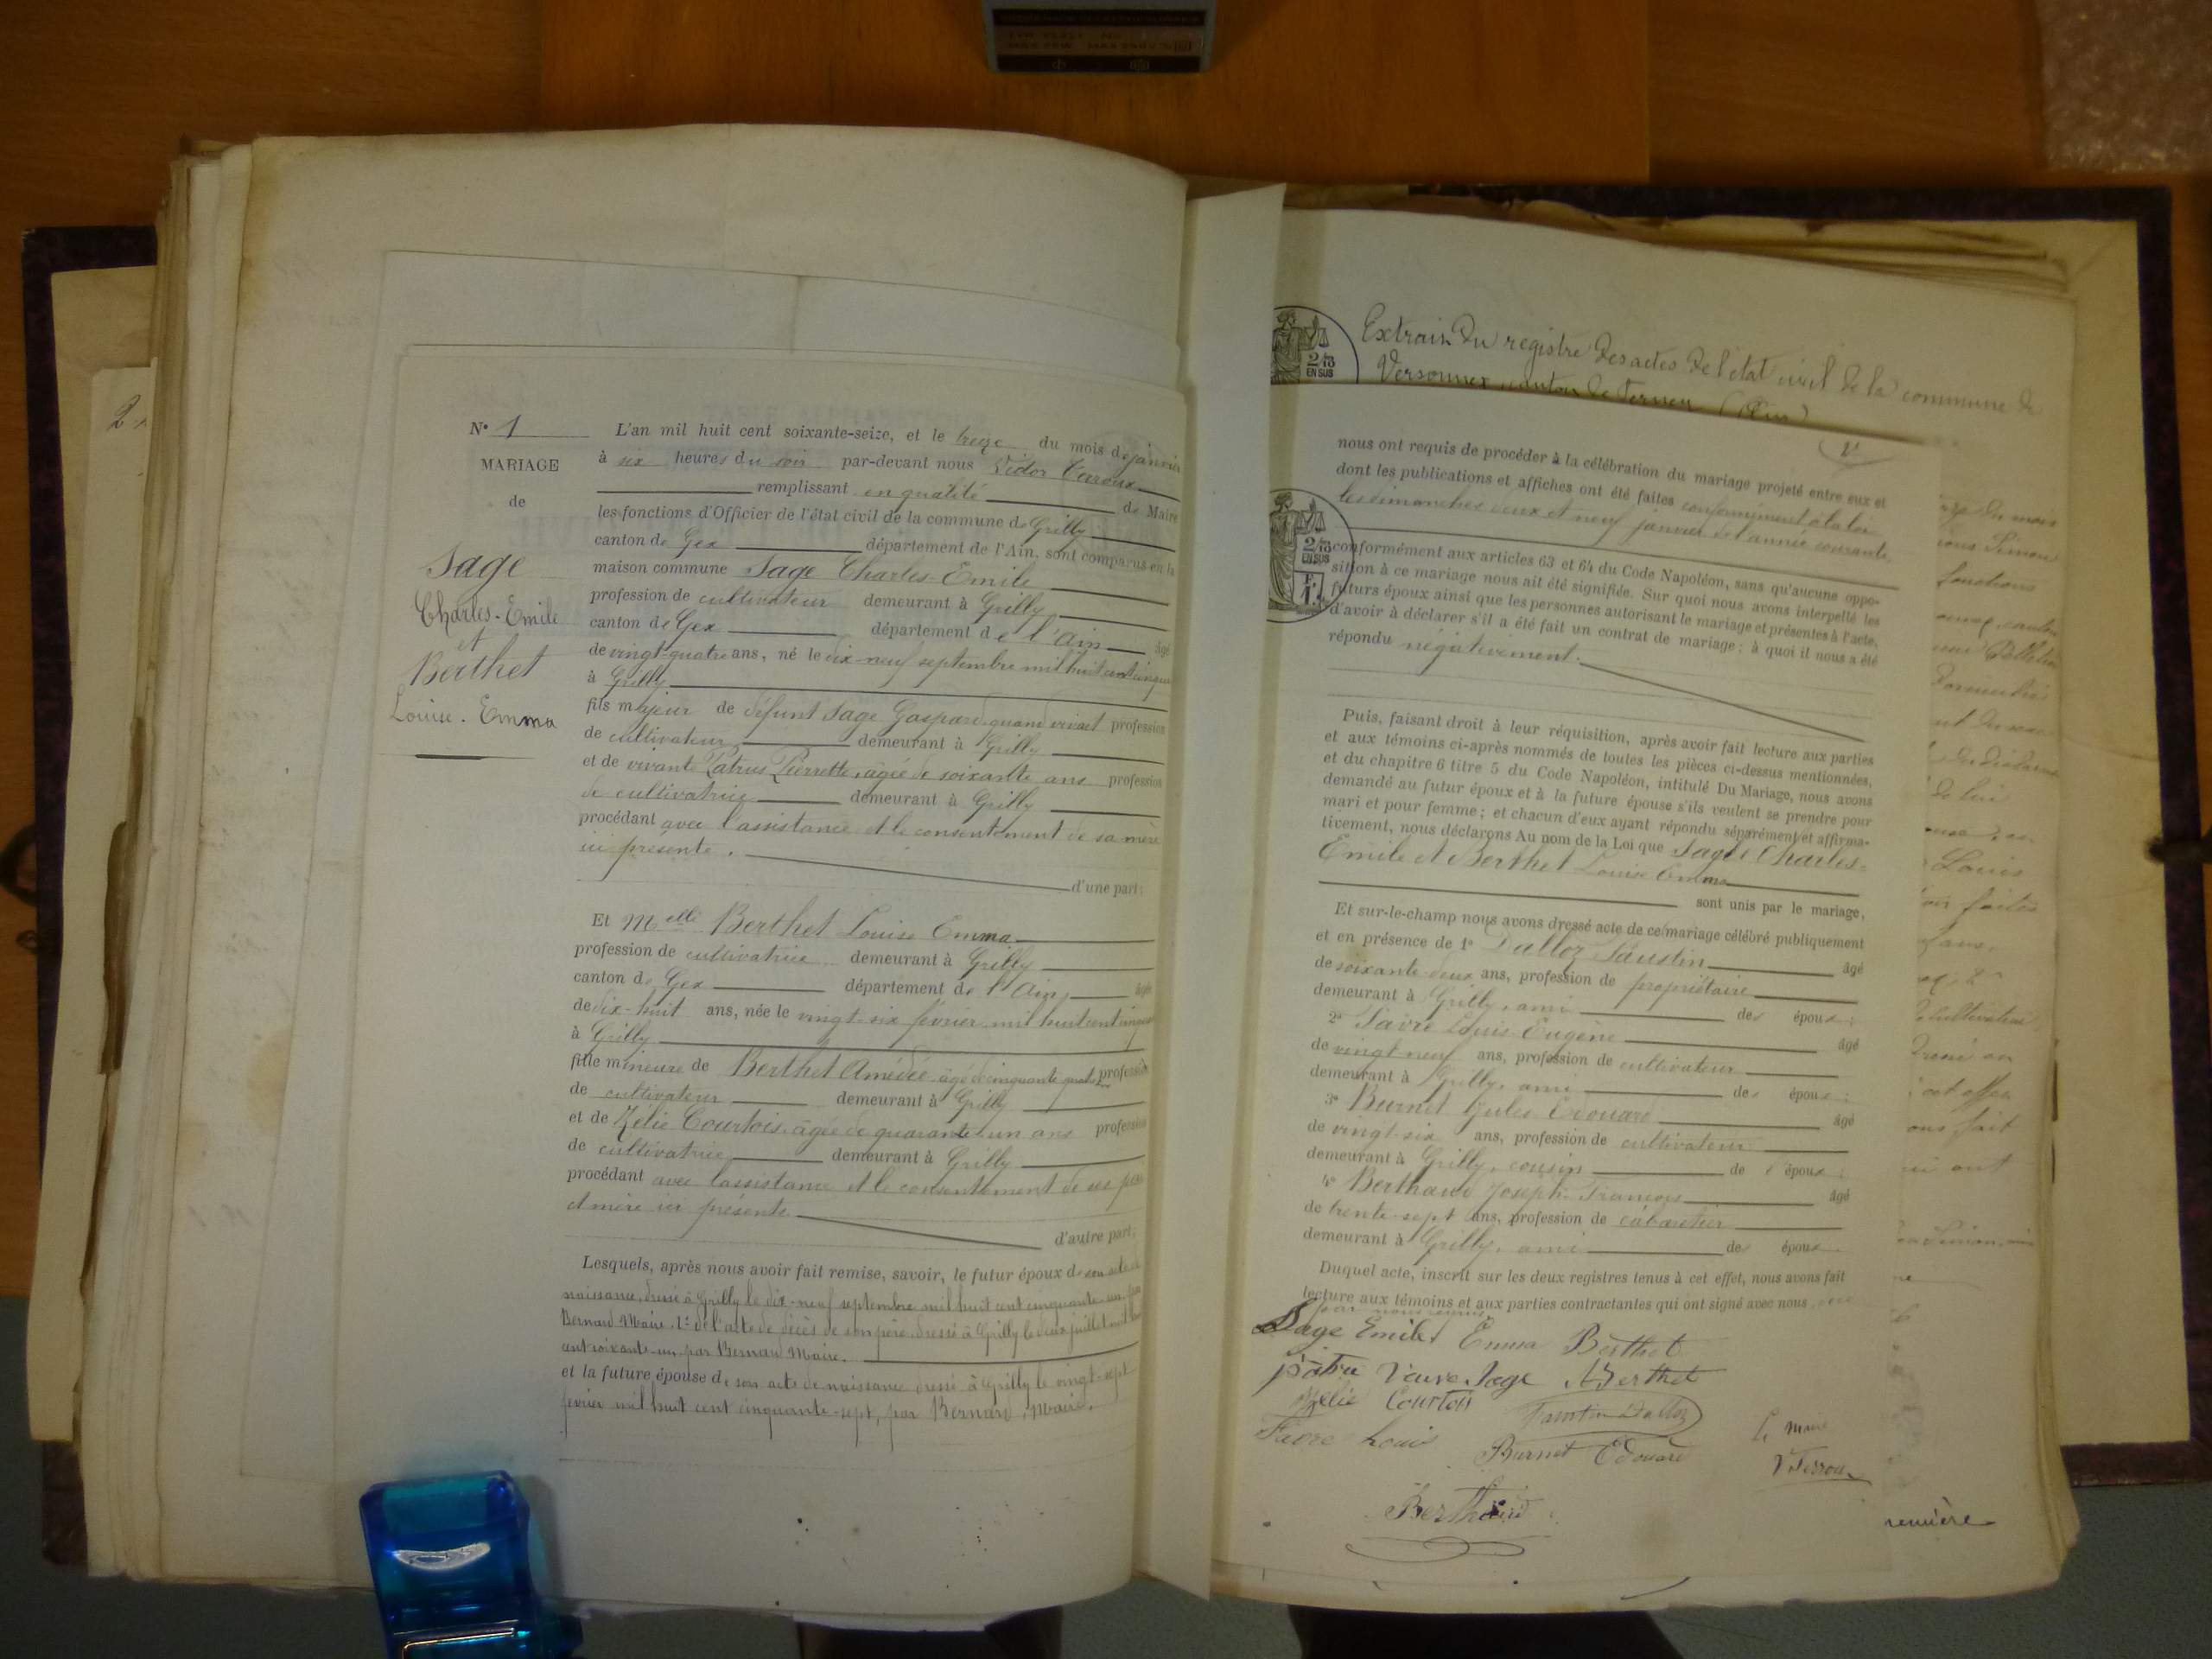 N° 1
MARIAGE
de
Sage
Charles-Emile
et
Berthet
Louise-Emma
L'an mil huit cent soixante-seize, et le treize du mois de janvier
à six heures du soir par-devant nous Victor
remplissant en qualité de Maire
les fonctions d'Officier de l'état civil de la commune de Grilly
canton de Gex département de l'Ain, sont comparus en la
maison commune Sage Charles-Emile
profession de cultivateur demeurant à Grilly
canton de Gex département de l'Ain âgé
de vingt-quatre ans, né le dix-neuf septembre mil huit cent cinqu
à Grilly
fils majeur de défunt Sage Gaspard quand vivait profession
de cultivateur demeurant à Grilly
et de vivante Patrus Pierrette, âgée de soixante ans profession
de cultivatrice demeurant à Grilly
procédant avec l'assistance et le consentement de sa mère
ici présente.
d'une part:
Et Melle Berthet Louise Emma
profession de cultivatrice demeurant à Grilly
canton de Gex département de l'Ain âgée
de dix-huit ans, née le vingt-six février mil huit cent cinqu
à Grilly
fille mineure de Berthet Amédée âgé de cinquante-quatre profession
de cultivateur demeurant à Grilly
et de Zélie Courtois, âgée de quarante un ans profession
de cultivatrice demeurant à Grilly
procédant avec l'assistance et le consentement de ses père
et mère ici présents
d'autre part.
Lesquels, après nous avoir fait remise, savoir, le futur époux de son acte de
naissance, dressé à Grilly le dix-neuf septembre mil huit cent cinquante-un par
Bernard Maire, 2° de l'acte de décès de son père, dressé à Grilly le deux juillet mil huit
cent soixante-un par Bernard Maire.
et la future épouse de son acte de naissance dressé à Grilly le vingt-sept
février mil huit cent cinquante-sept, par Bernard, Maire.
Extrait du registre des actes de l'état civil de la commune de
Versonnex canton de Ferney (Ain)
2/10
EN SUS
2/10
EN SUS
nous ont requis de procéder à la célébration du mariage projeté entre eux et
dont les publications et affiches ont été faites conformément à la loi
les dimanches deux et neuf janvier de l'année courante
conformément aux articles 63 et 64 du Code Napoléon, sans qu'aucune oppo-
sition à ce mariage nous ait été signifiée. Sur quoi nous avons interpellé les
futurs époux ainsi que les personnes autorisant le mariage et présentes à l'acte,
d'avoir à déclarer s'il a été fait un contrat de mariage; à quoi il nous a été
répondu négativement.
Puis, faisant droit à leur réquisition, après avoir fait lecture aux parties
et aux témoins ci-après nommés de toutes les pièces ci-dessus mentionnées,
et du chapitre 6 titre 5 du Code Napoléon, intitulé Du Mariage, nous avons
demandé au futur époux et à la future épouse s'ils veulent se prendre pour
mari et pour femme; et chacun d'eux ayant répondu séparément et affirma-
tivement, nous déclarons Au nom de la Loi que Sage Charles-
Emile et Berthet Louise Emma
sont unis par le mariage,
Et sur-le-champ nous avons dressé acte de ce mariage célébré publiquement
et en présence de 1° Dalloz Faustin âgé
de soixante-deux ans, profession de propriétaire
demeurant à Grilly, ami des époux:
2° Favre Louis Eugène âgé
de vingt-neuf ans, profession de cultivateur
demeurant à Grilly, ami des époux:
3° Burnet Jules Edouard âgé
de vingt-six ans, profession de cultivateur
demeurant à Grilly, cousin de l'époux:
4° Berthaud Joseph-François âgé
de trente-sept ans, profession de cabaretier
demeurant à Grilly, ami des époux
Duquel acte, inscrit sur les deux registres tenus à cet effet, nous avons fait
lecture aux témoins et aux parties contractantes qui ont signé avec nous
Sage Emile Emma Berthet
patru Veuve Sage A Berthet
Zélie Courtois Faustin Dalloz
Favre Louis Burnet Edouard
Le maire
Berthaud